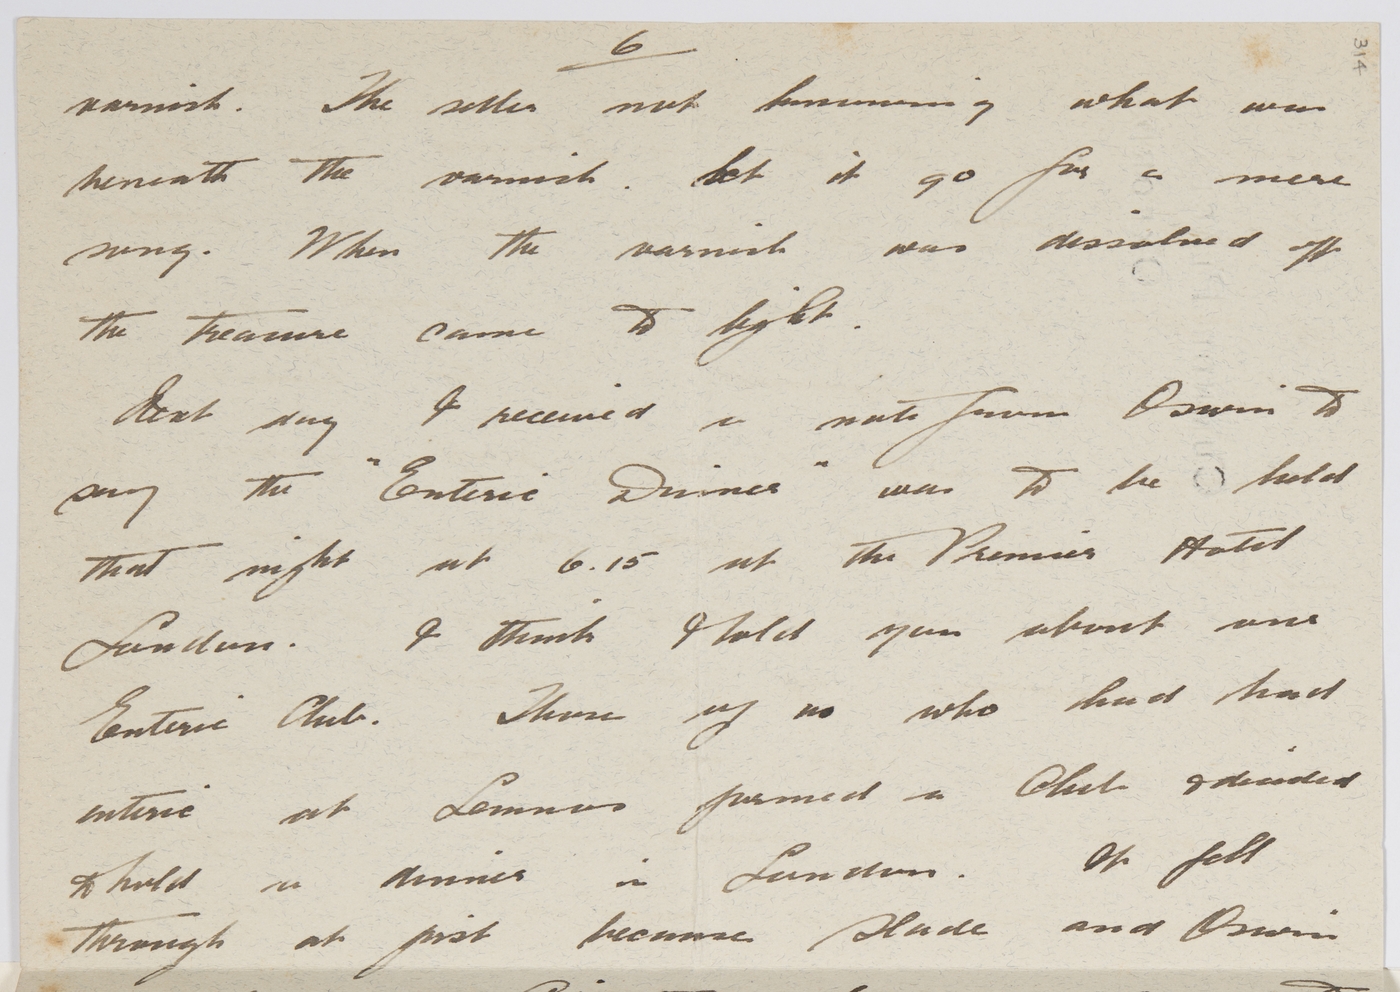 6
314
varnish. The seller not knowing what was
beneath the varnish. let it go for a mere
song. When the varnish was dissolved off
the treasure came to light.
Next day I received a note from Oswin to
say the "Enteric Dinner" was to be held
that night at 6.15 at the Premier Hotel
London. I think I told you about our
Enteric Club. Those of us who had had
enteric at Lemnos formed a Club & decided
to hold a dinner in London. It fell
through at first because Slade and Oswin